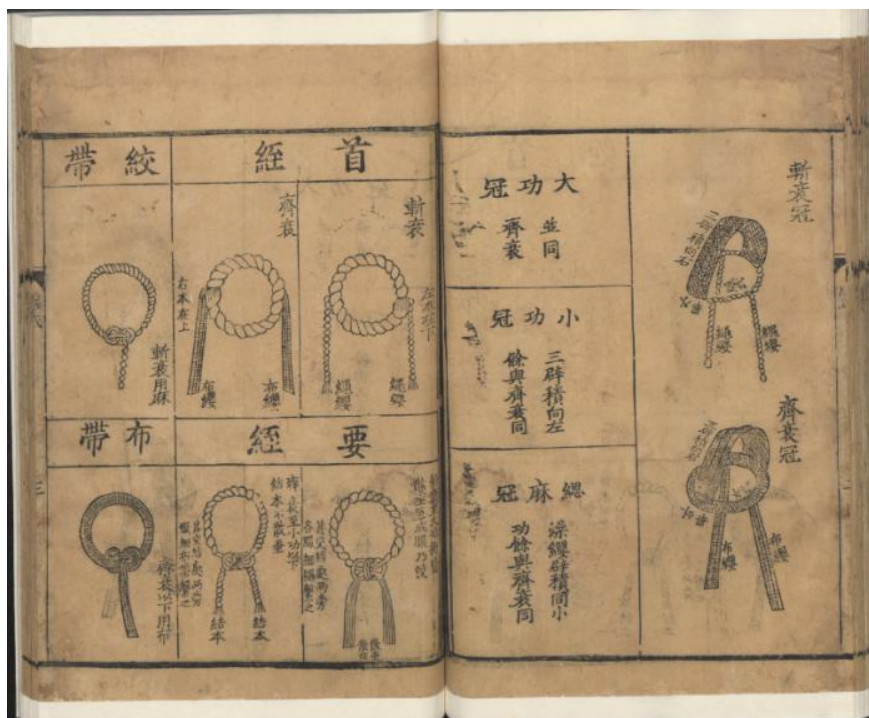 斬衰冠
三辟積向右
繩纓
繩纓
齊衰冠
布纓
布纓
大功冠
並同
齊衰
小功冠
三辟積向左
餘與齊衰同
緦麻冠
澡纓辟積同小
功餘與齊衰同
首絰
斬衰
繩纓
繩纓
齊衰
右本在上
布纓
布纓
絞帶
斬衰用麻
要絰
結本
結本
布帶
齊衰以下用布